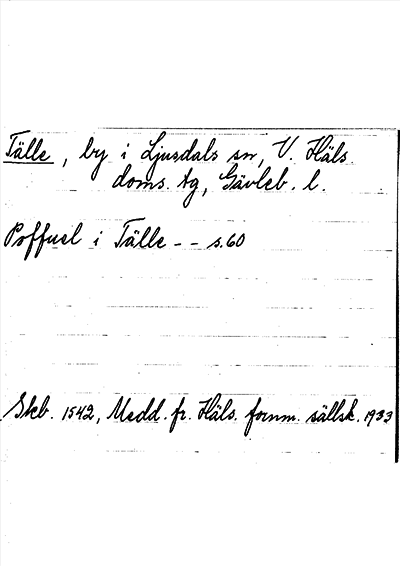 Tälle, by i Ljusdals sn, V. Häls.
doms. tg, Gävleb. l.
Poffuel i Tälle - - s. 60
Skb. 1542, Medd. fr. Häls. fornm. sällsk. 1933